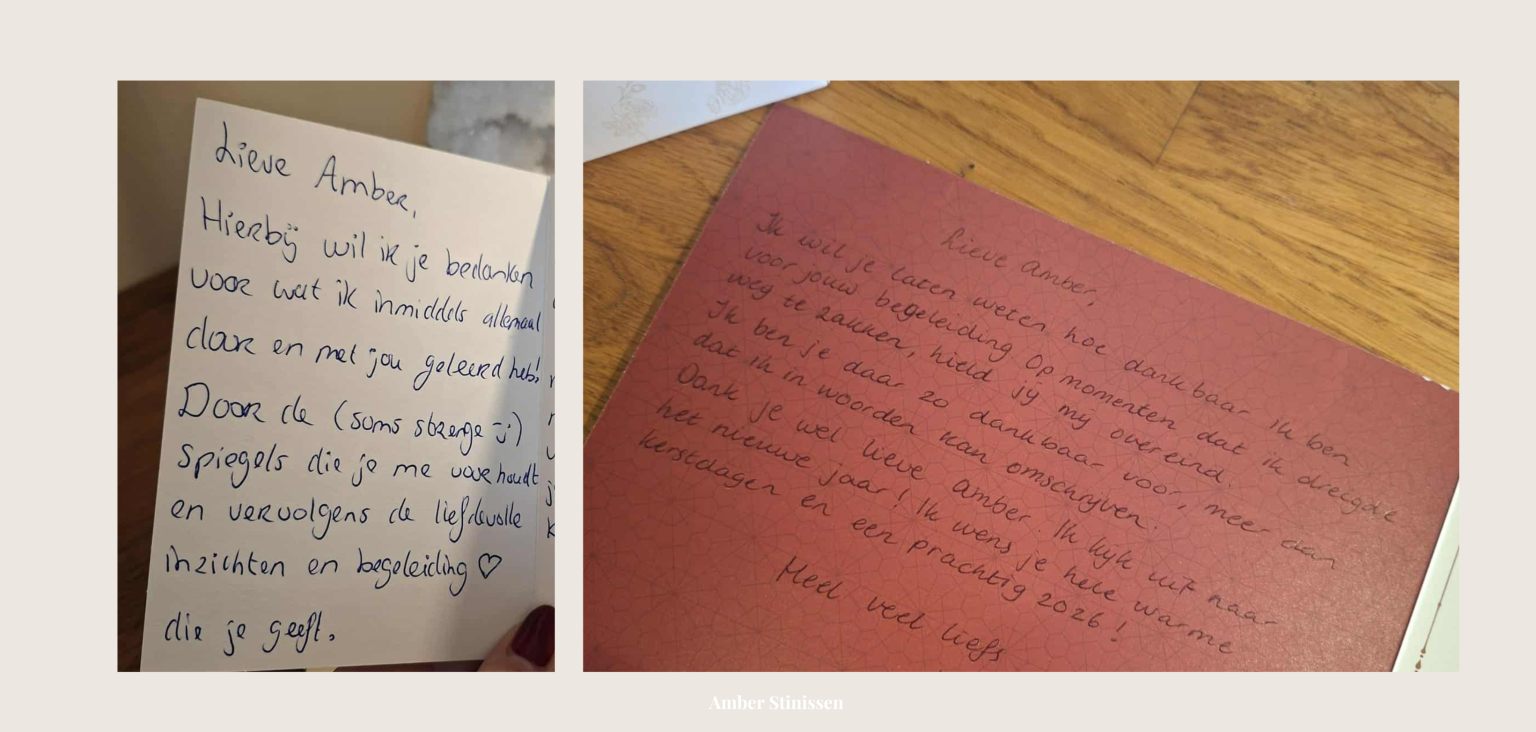 Lieve Amber,
Hierbij wil ik je bedanken
voor wat ik inmiddels allemaal
door en met jou geleerd heb!
Door de (soms strenge :))
Spiegels die je me voorhoudt
en vervolgens de liefdevolle
inzichten en begeleiding ♡
die je geeft.
Lieve Amber,
Ik wil je laten weten hoe dankbaar ik ben
voor jouw begeleiding Op momenten dat ik dreigde
weg te zakken, hield jij mij overeind.
Ik ben je daar zo dankbaar voor, meer dan
dat ik in woorden kan omschrijven.
Dank je wel lieve Amber. Ik kijk uit naar
het nieuwe jaar! Ik wens je hele warme
kerstdagen en een prachtig 2026!
Heel veel liefs
Amber Stinissen